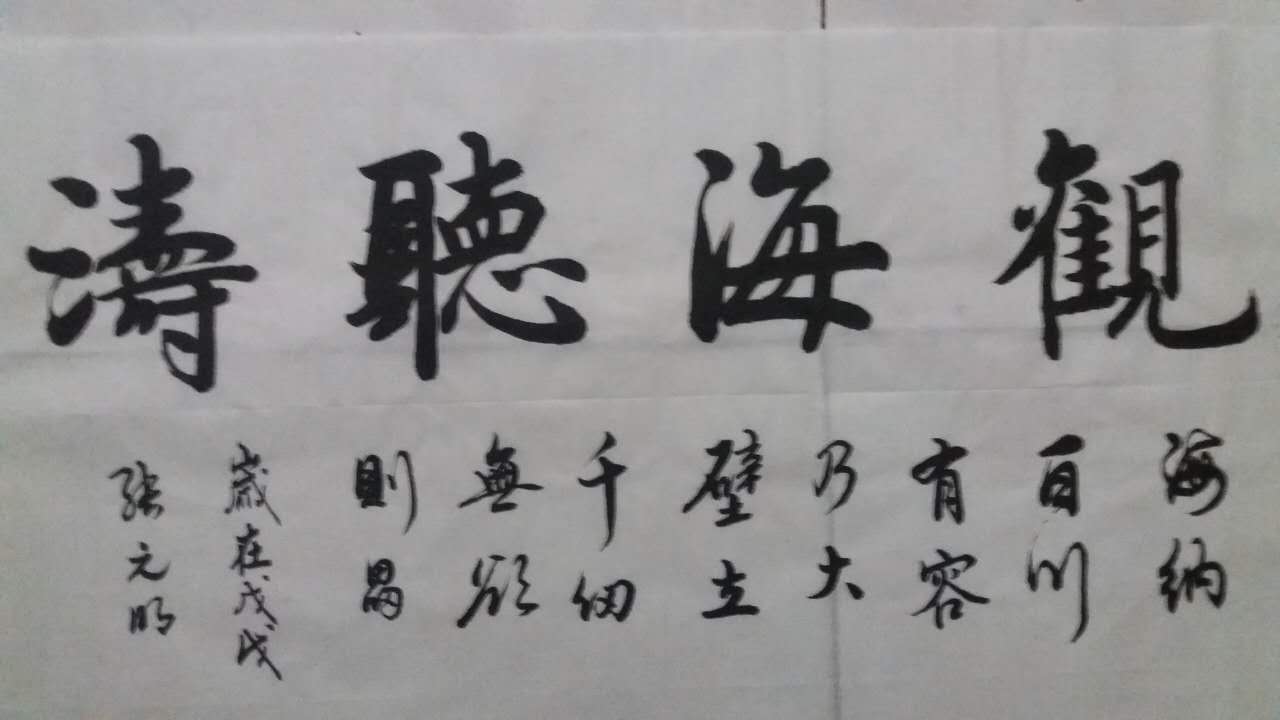 觀海聽濤
海納
百川
有容
乃大
壁立
千仞
無欲
則
歲在戊戌
張元明